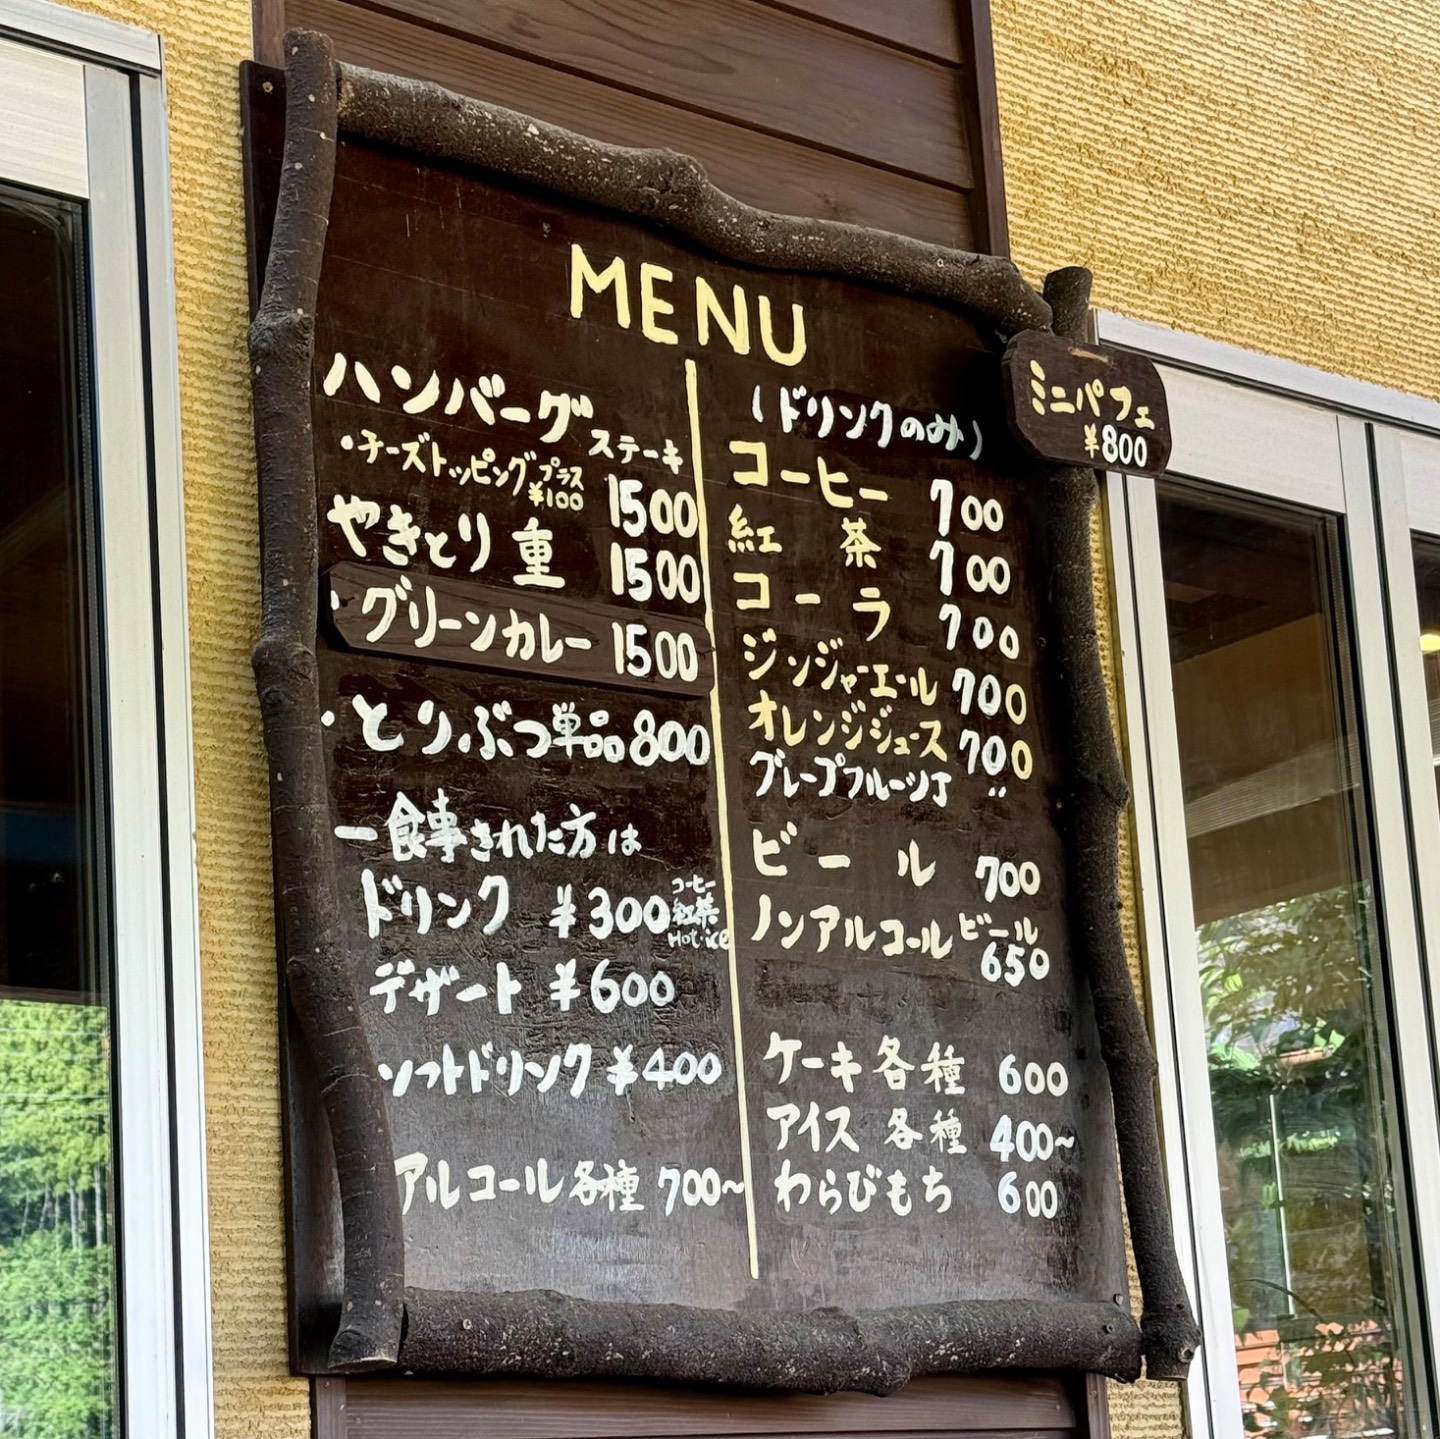 MENU
ハンバーグステーキ
・チーズトッピングプラス¥100 1500
やきとり重 1500
・グリーンカレー 1500
・とりぶつ単品 800
ー食事された方は
ドリンク ¥300 コーヒー 紅茶 Hot・ice
デザート ¥600
ソフトドリンク ¥400
アルコール各種 700~
(ドリンクのみ)
コーヒー 700
紅茶 700
コーラ 700
ジンジャーエール 700
オレンジジュース 700
グレープフルーツJ 〃
ビール 700
ノンアルコールビール 650
ケーキ各種 600
アイス各種 400~
わらびもち 600
ミニパフェ
¥800